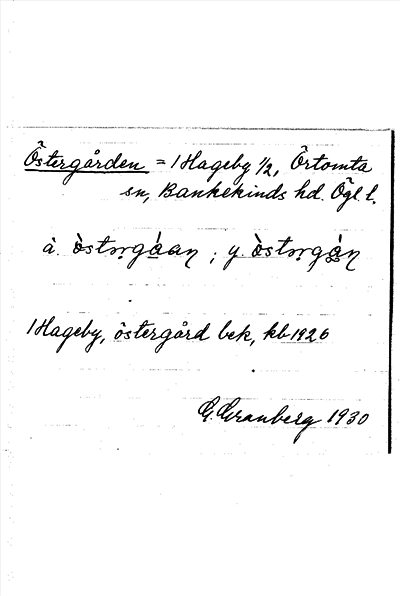 Östergården = 1 Hageby 1/2, Örtomta
sn, Bankekinds hd. Ögl l.
ä. ò̈stərgáan ; y. ò̈stərgán
1 Hageby, östergård bek, kb 1926
G. Granberg 1930